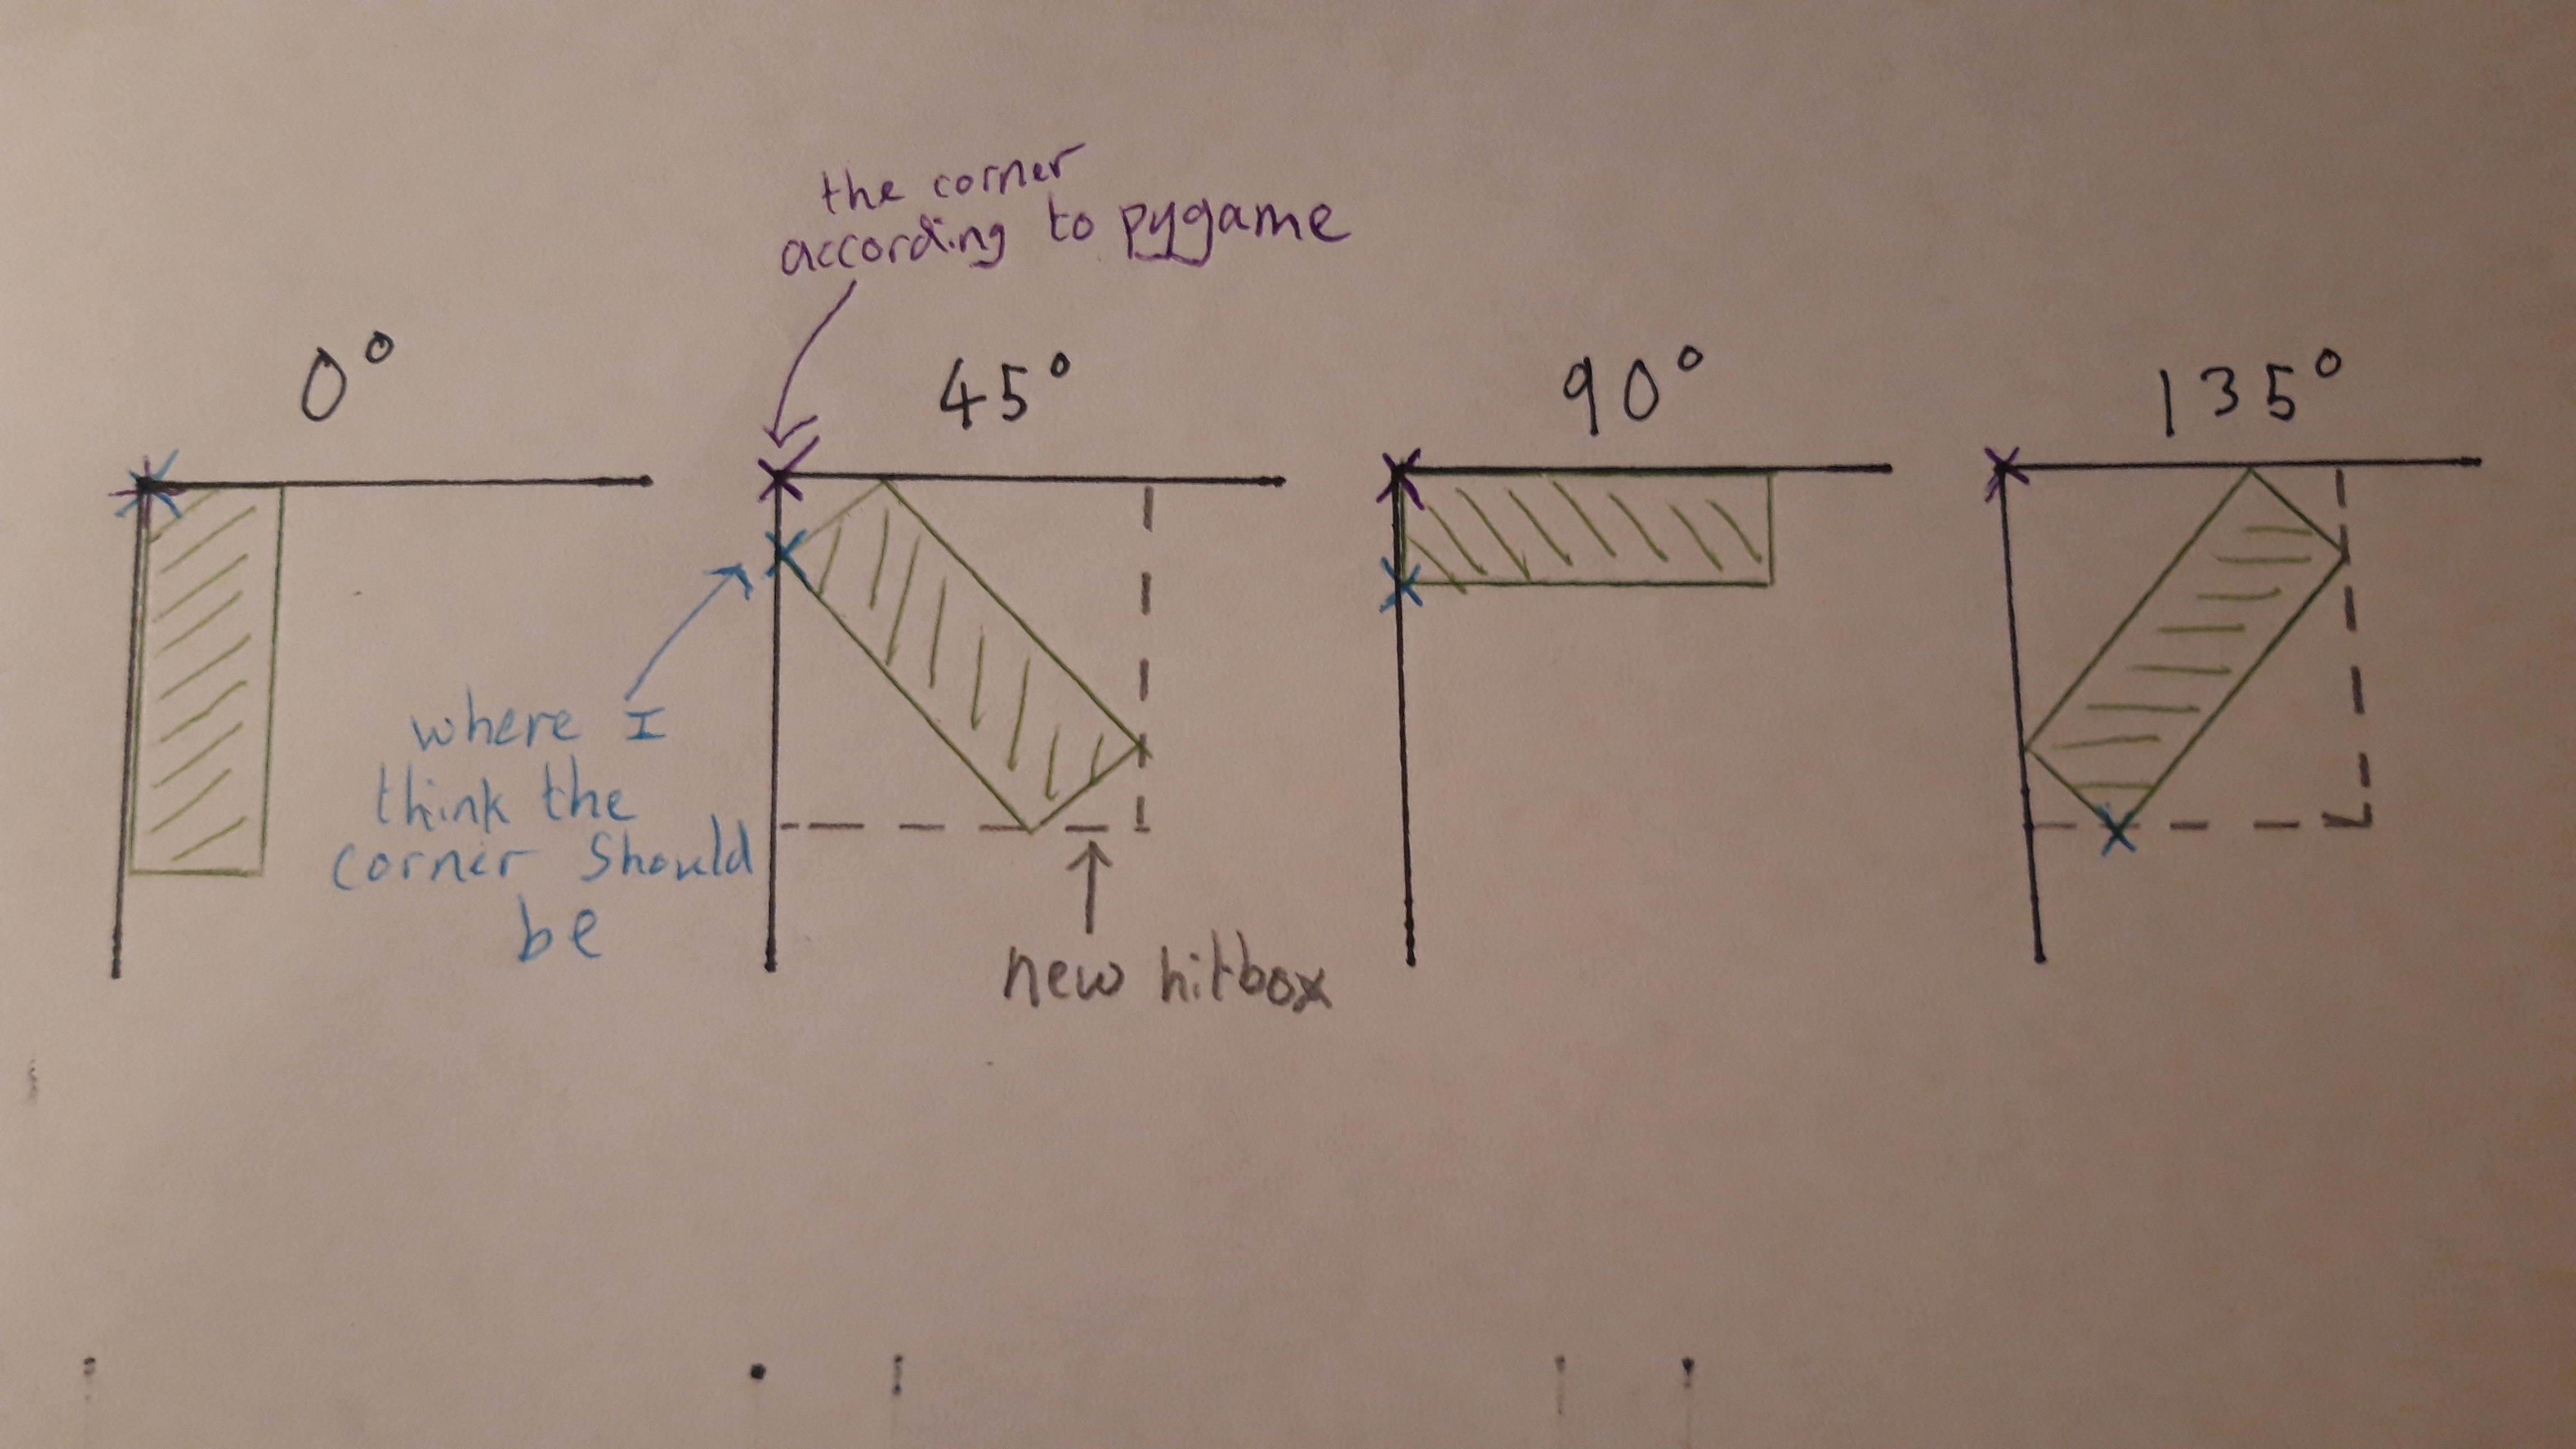 the corner
according to pygame
0°
45°
90°
135°
where I
think the
corner Should
be
new hitbox